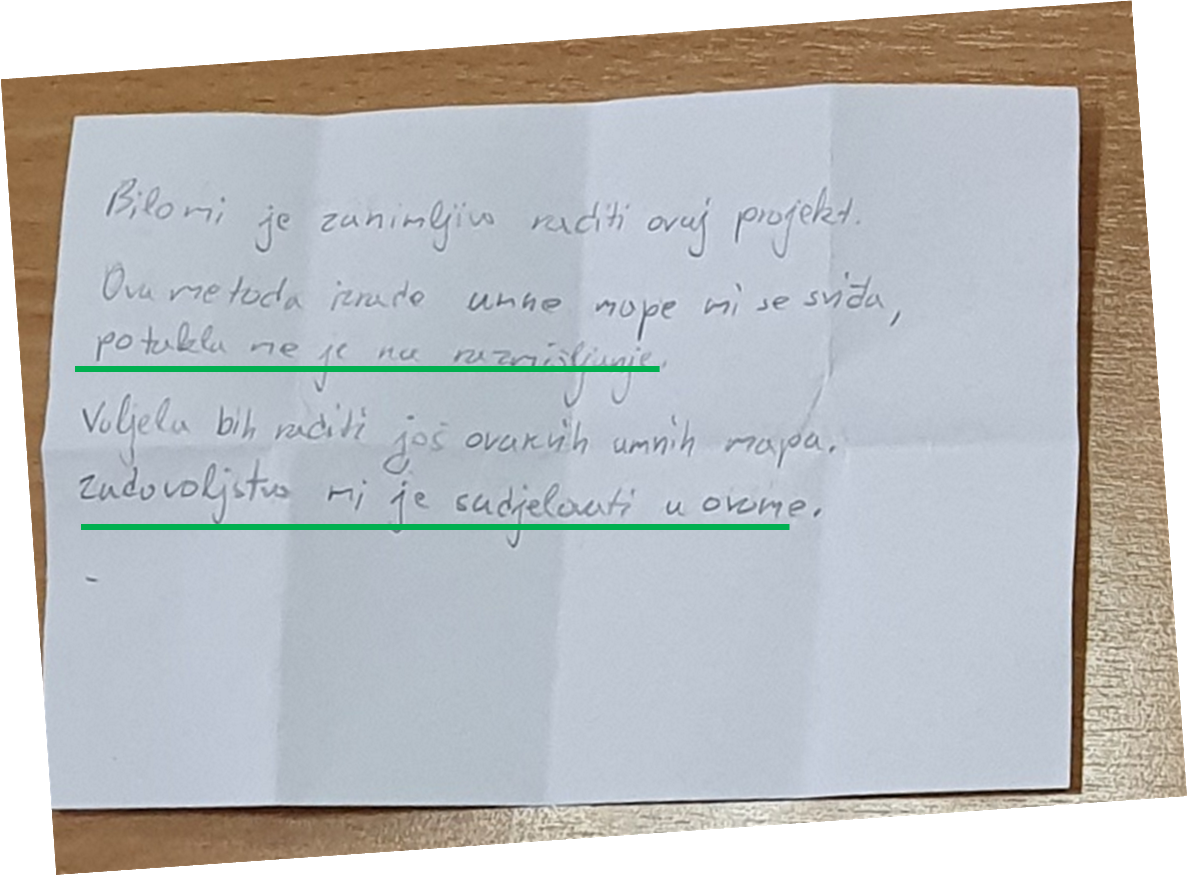 Bilo mi je zanimljivo raditi ovaj projekt.
Ova metoda izrade umne mape mi se sviđa,
potakla me je na razmišljanje.
Voljela bih raditi još ovakvih umnih mapa.
Zadovoljstvo mi je sudjelovati u ovome.
-